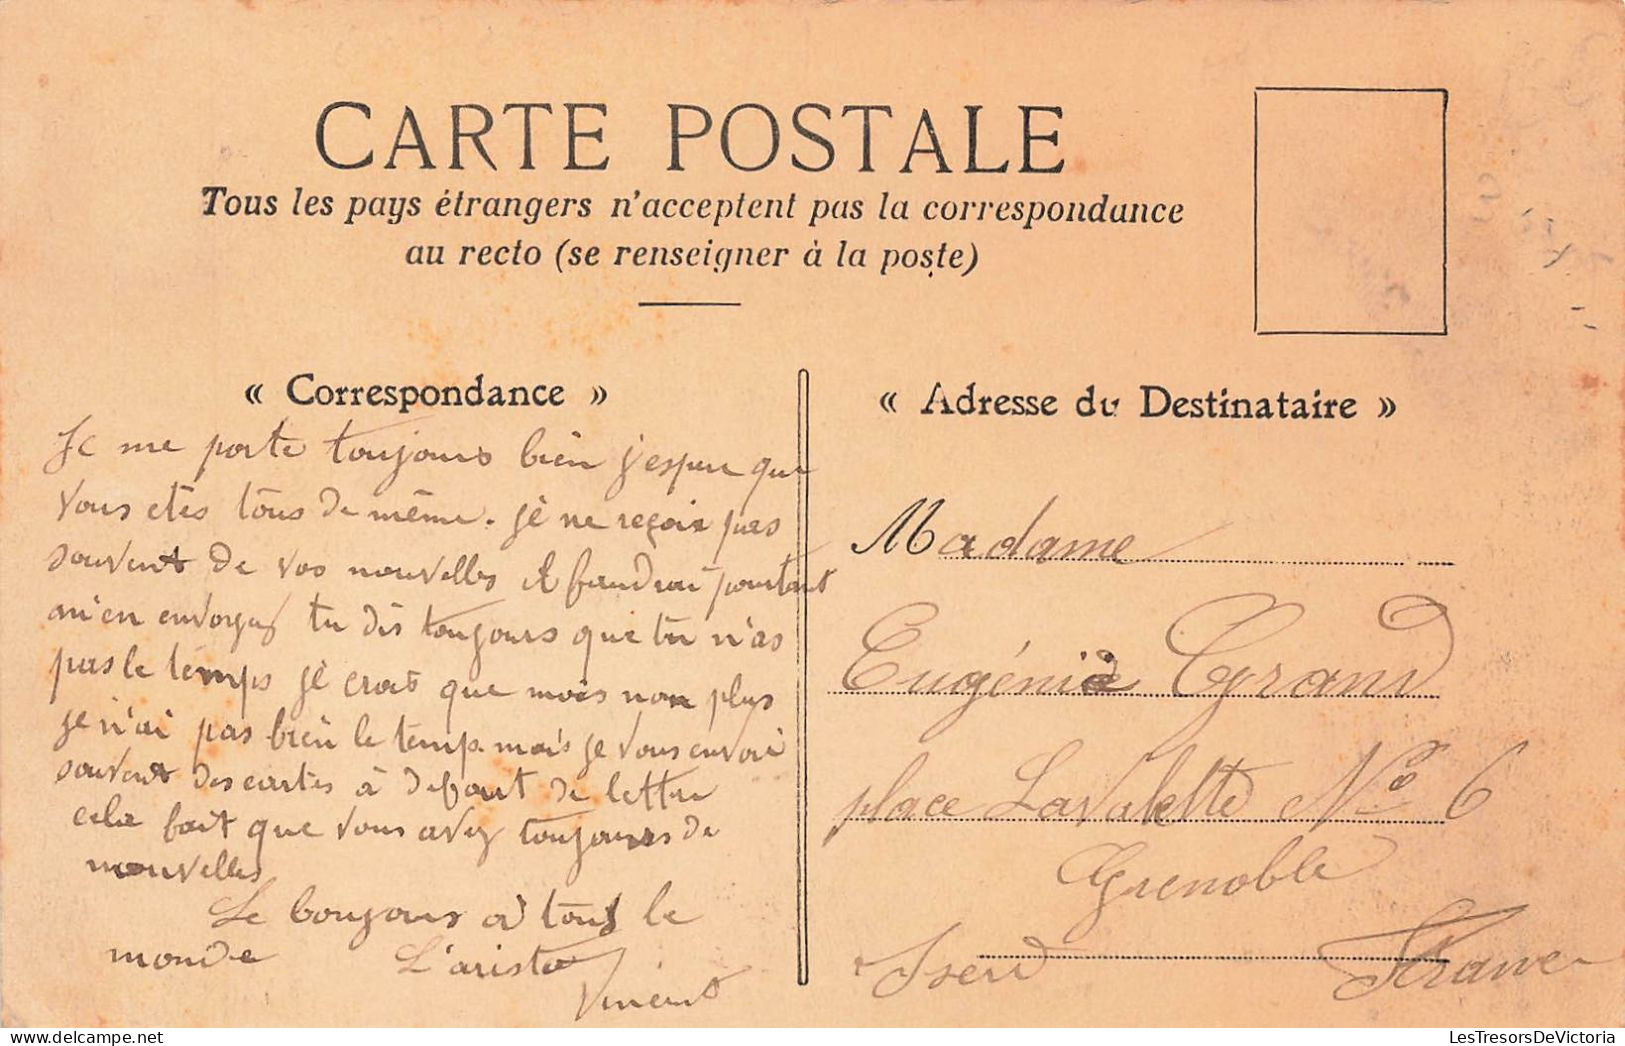 CARTE POSTALE
Tous les pays étrangers n'acceptent pas la correspondance
au recto (se renseigner à la poste)
« Correspondance »
Je me porte toujours bien j'espere que
vous etès tous de même. je ne reçoix pas
souvent de vos nouvelles il faudrai pourtant
m'en envoyez tu dis toujours que tu n'as
pas le temps je croit que mois non plus
je n'ai pas bien le temp. mais je vous envoi
souvent des cartes à defaut de lettre
cela fait que vous avez toujours de
nouvelles
Le boujours a tous le
monde L'aristo
Vincent
« Adresse du Destinataire »
Madame
Eugénie Grand
place Lavalette No 6
Grenoble
Isere France
LesTresorsDeVictoria